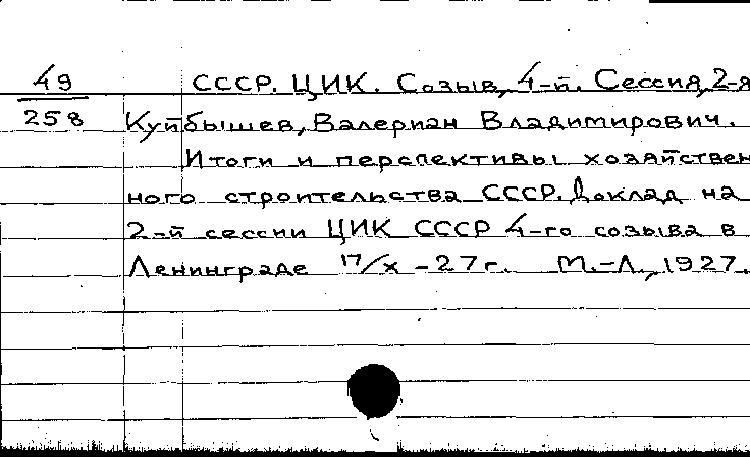 49
258
СССР. ЦИК. Созыв, 4-й. Сессия, 2-я
Куйбышев, Валериан Владимирович.
Итоги и перспективы хозяйствен
ного строительства СССР. Доклад на
2-й сессии ЦИК СССР 4-го созыва в
Ленинграде 17/X-27г. М.-Л., 1927.